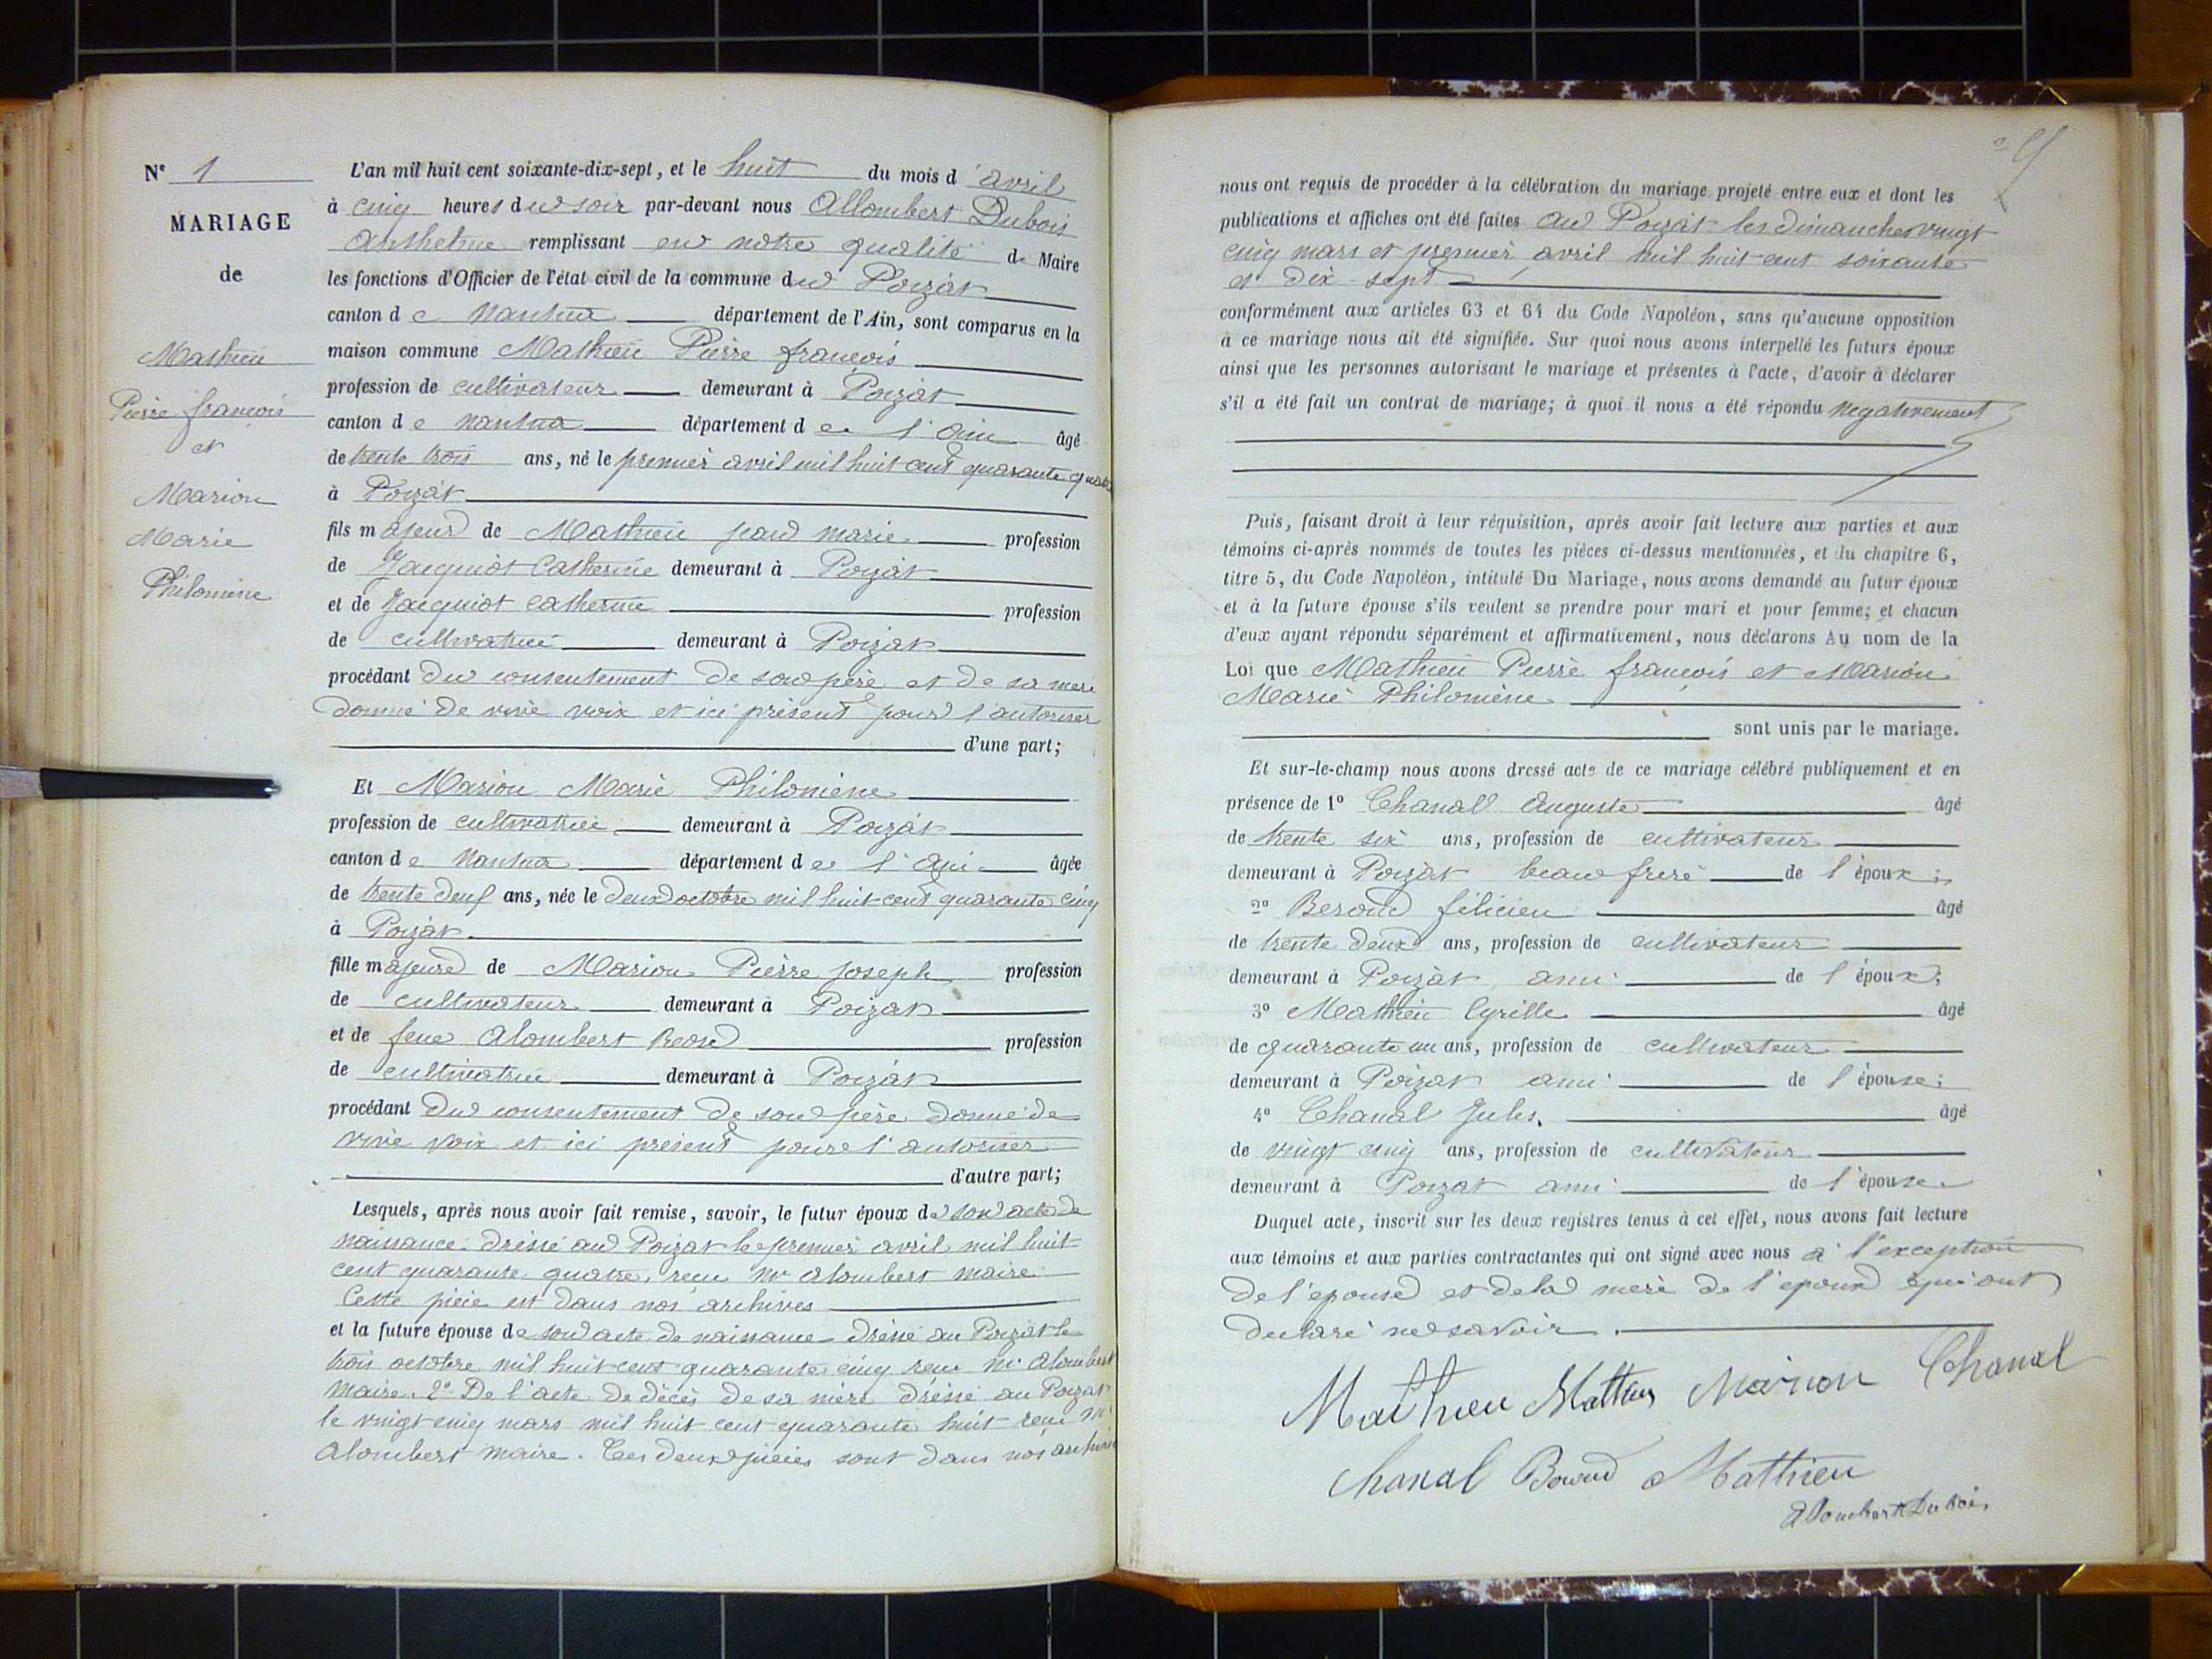 N° 1
MARIAGE
de
Mathieu
Pierre françois
et
Marion
Marie
Philomène
L'an mil huit cent soixante-dix-sept, et le huit du mois d'avril
à cinq heures du soir par-devant nous Allombert Dubois
Anthelme remplissant en notre qualité de Maire
les fonctions d'Officier de l'état civil de la commune du Poizat
canton de Nantua département de l'Ain, sont comparus en la
maison commune Mathieu Pierre françois
profession de cultivateur demeurant à Poizat
canton de Nantua département de l'Ain âgé
de trente trois ans, né le premier avril mil huit cent quarante quatre
à Poizat
fils majeur de Mathieu marie profession
de Jacquiot Catherine demeurant à Poizat
et de Jacquiot Catherine profession
de cultivatrice demeurant à Poizat
procédant du consentement de son père et de sa mère
donné de vive voix et ici présent pour l'autoriser
d'une part;
Et Marion Marie Philomène
profession de cultivatrice demeurant à Poizat
canton de Nantua département de l'Ain âgée
de trente deuf ans, née le deux octobre mil huit cent quarante cinq
à Poizat
fille majeure de Marion Pierre joseph profession
de cultivateur demeurant à Poizat
et de feue Alombert profession
de cultivatrice demeurant à Poizat
procédant du consentement de son père donné de
vive voix et ici présent pour l'autoriser
d'autre part;
Lesquels, après nous avoir fait remise, savoir, le futur époux de son acte de
naissance dressé au Poizat le premier avril mil huit
cent quarante quatre, reçu Mr Alombert maire
Cette pièce est dans nos archives
et la future épouse de son acte de naissance dressé au Poizat le
trois octobre mil huit cent quarante cinq reçu Mr Alombert
Maire. 2° De l'acte de décès de sa mère dressé au Poizat
le vingt cinq mars mil huit cent quarante huit reçu Mr
Alombert maire. Ces deux pièces sont dans nos archives
nous ont requis de procéder à la célébration du mariage projeté entre eux et dont les
publications et affiches ont été faites au Poizat les dimanches vingt
cinq mars et premier avril mil huit cent soixante
et dix-sept
conformément aux articles 63 et 64 du Code Napoléon, sans qu'aucune opposition
à ce mariage nous ait été signifiée. Sur quoi nous avons interpellé les futurs époux
ainsi que les personnes autorisant le mariage et présentes à l'acte, d'avoir à déclarer
s'il a été fait un contrat de mariage; à quoi il nous a été répondu négativement
Puis, faisant droit à leur réquisition, après avoir fait lecture aux parties et aux
témoins ci-après nommés de toutes les pièces ci-dessus mentionnées, et du chapitre 6,
titre 5, du Code Napoléon, intitulé Du Mariage, nous avons demandé au futur époux
et à la future épouse s'ils veulent se prendre pour mari et pour femme; et chacun
d'eux ayant répondu séparément et affirmativement, nous déclarons Au nom de la
Loi que Mathieu Pierre françois et Marion
Marie Philomène
sont unis par le mariage.
Et sur-le-champ nous avons dressé acte de ce mariage célébré publiquement et en
présence de 1° Chanall Auguste âgé
de trente six ans, profession de cultivateur
demeurant à Poizat beau frère de l'époux;
2° Beroud félicien âgé
de trente deux ans, profession de cultivateur
demeurant à Poizat ami de l'époux;
3° Mathieu Cyrille âgé
de quarante un ans, profession de cultivateur
demeurant à Poizat ami de l'épouse;
4° Chanal Jules. âgé
de vingt cinq ans, profession de cultivateur
demeurant à Poizat ami de l'épouse
Duquel acte, inscrit sur les deux registres tenus à cet effet, nous avons fait lecture
aux témoins et aux parties contractantes qui ont signé avec nous à l'exception
de l'épouse et de la mère de l'époux qui ont
déclaré ne savoir.
Mathieu Marion Chanal
Chanal Mathieu
Alombert Dubois